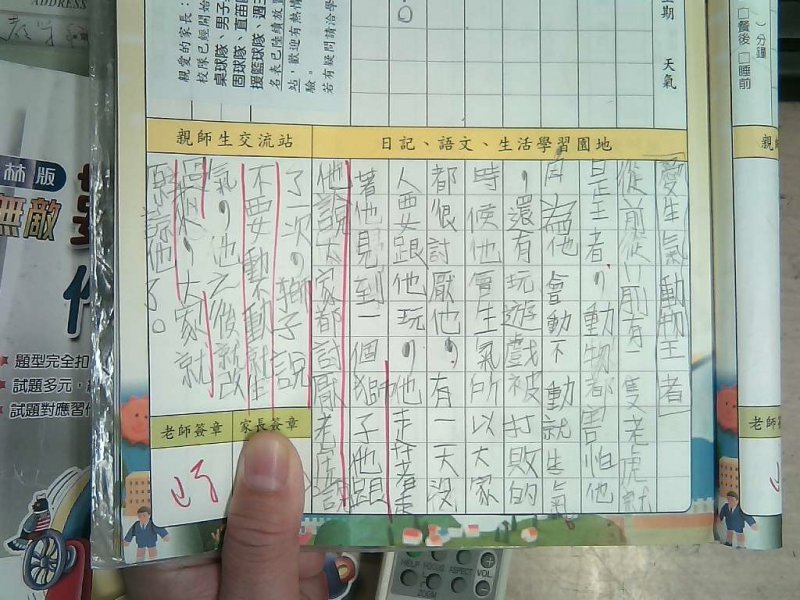 ADDRESS
親愛的家長：
校隊已經開始
桌球隊、男子
固球隊、直笛
援籃球隊、週三
名表已陸續放置
站，歡迎有熱情
若有疑問請洽學
驗。
星期
天氣
分鐘
□餐後 □睡前
親師生交流站
日記、語文、生活學習園地
愛生氣動物王者
從前從前有一隻老虎就
是王者，動物都害怕他
因為他會動不動就生氣
，還有玩遊戲被打敗的
時候他會生氣所以大家
都很討厭他，有一天沒
人要跟他玩，他走著走
著他見到一個獅子他跟
他說大家都討厭老虎說
了一次，獅子說
不要動不動就生
氣，他之後就改
過來，大家就
原諒他了。
老師簽章
家長簽章
林版
無敵
題型完全扣
試題多元，
試題對應習作
親師
老師簽
HOUR
FOCUS
ASPECT
VOL
ZOOM